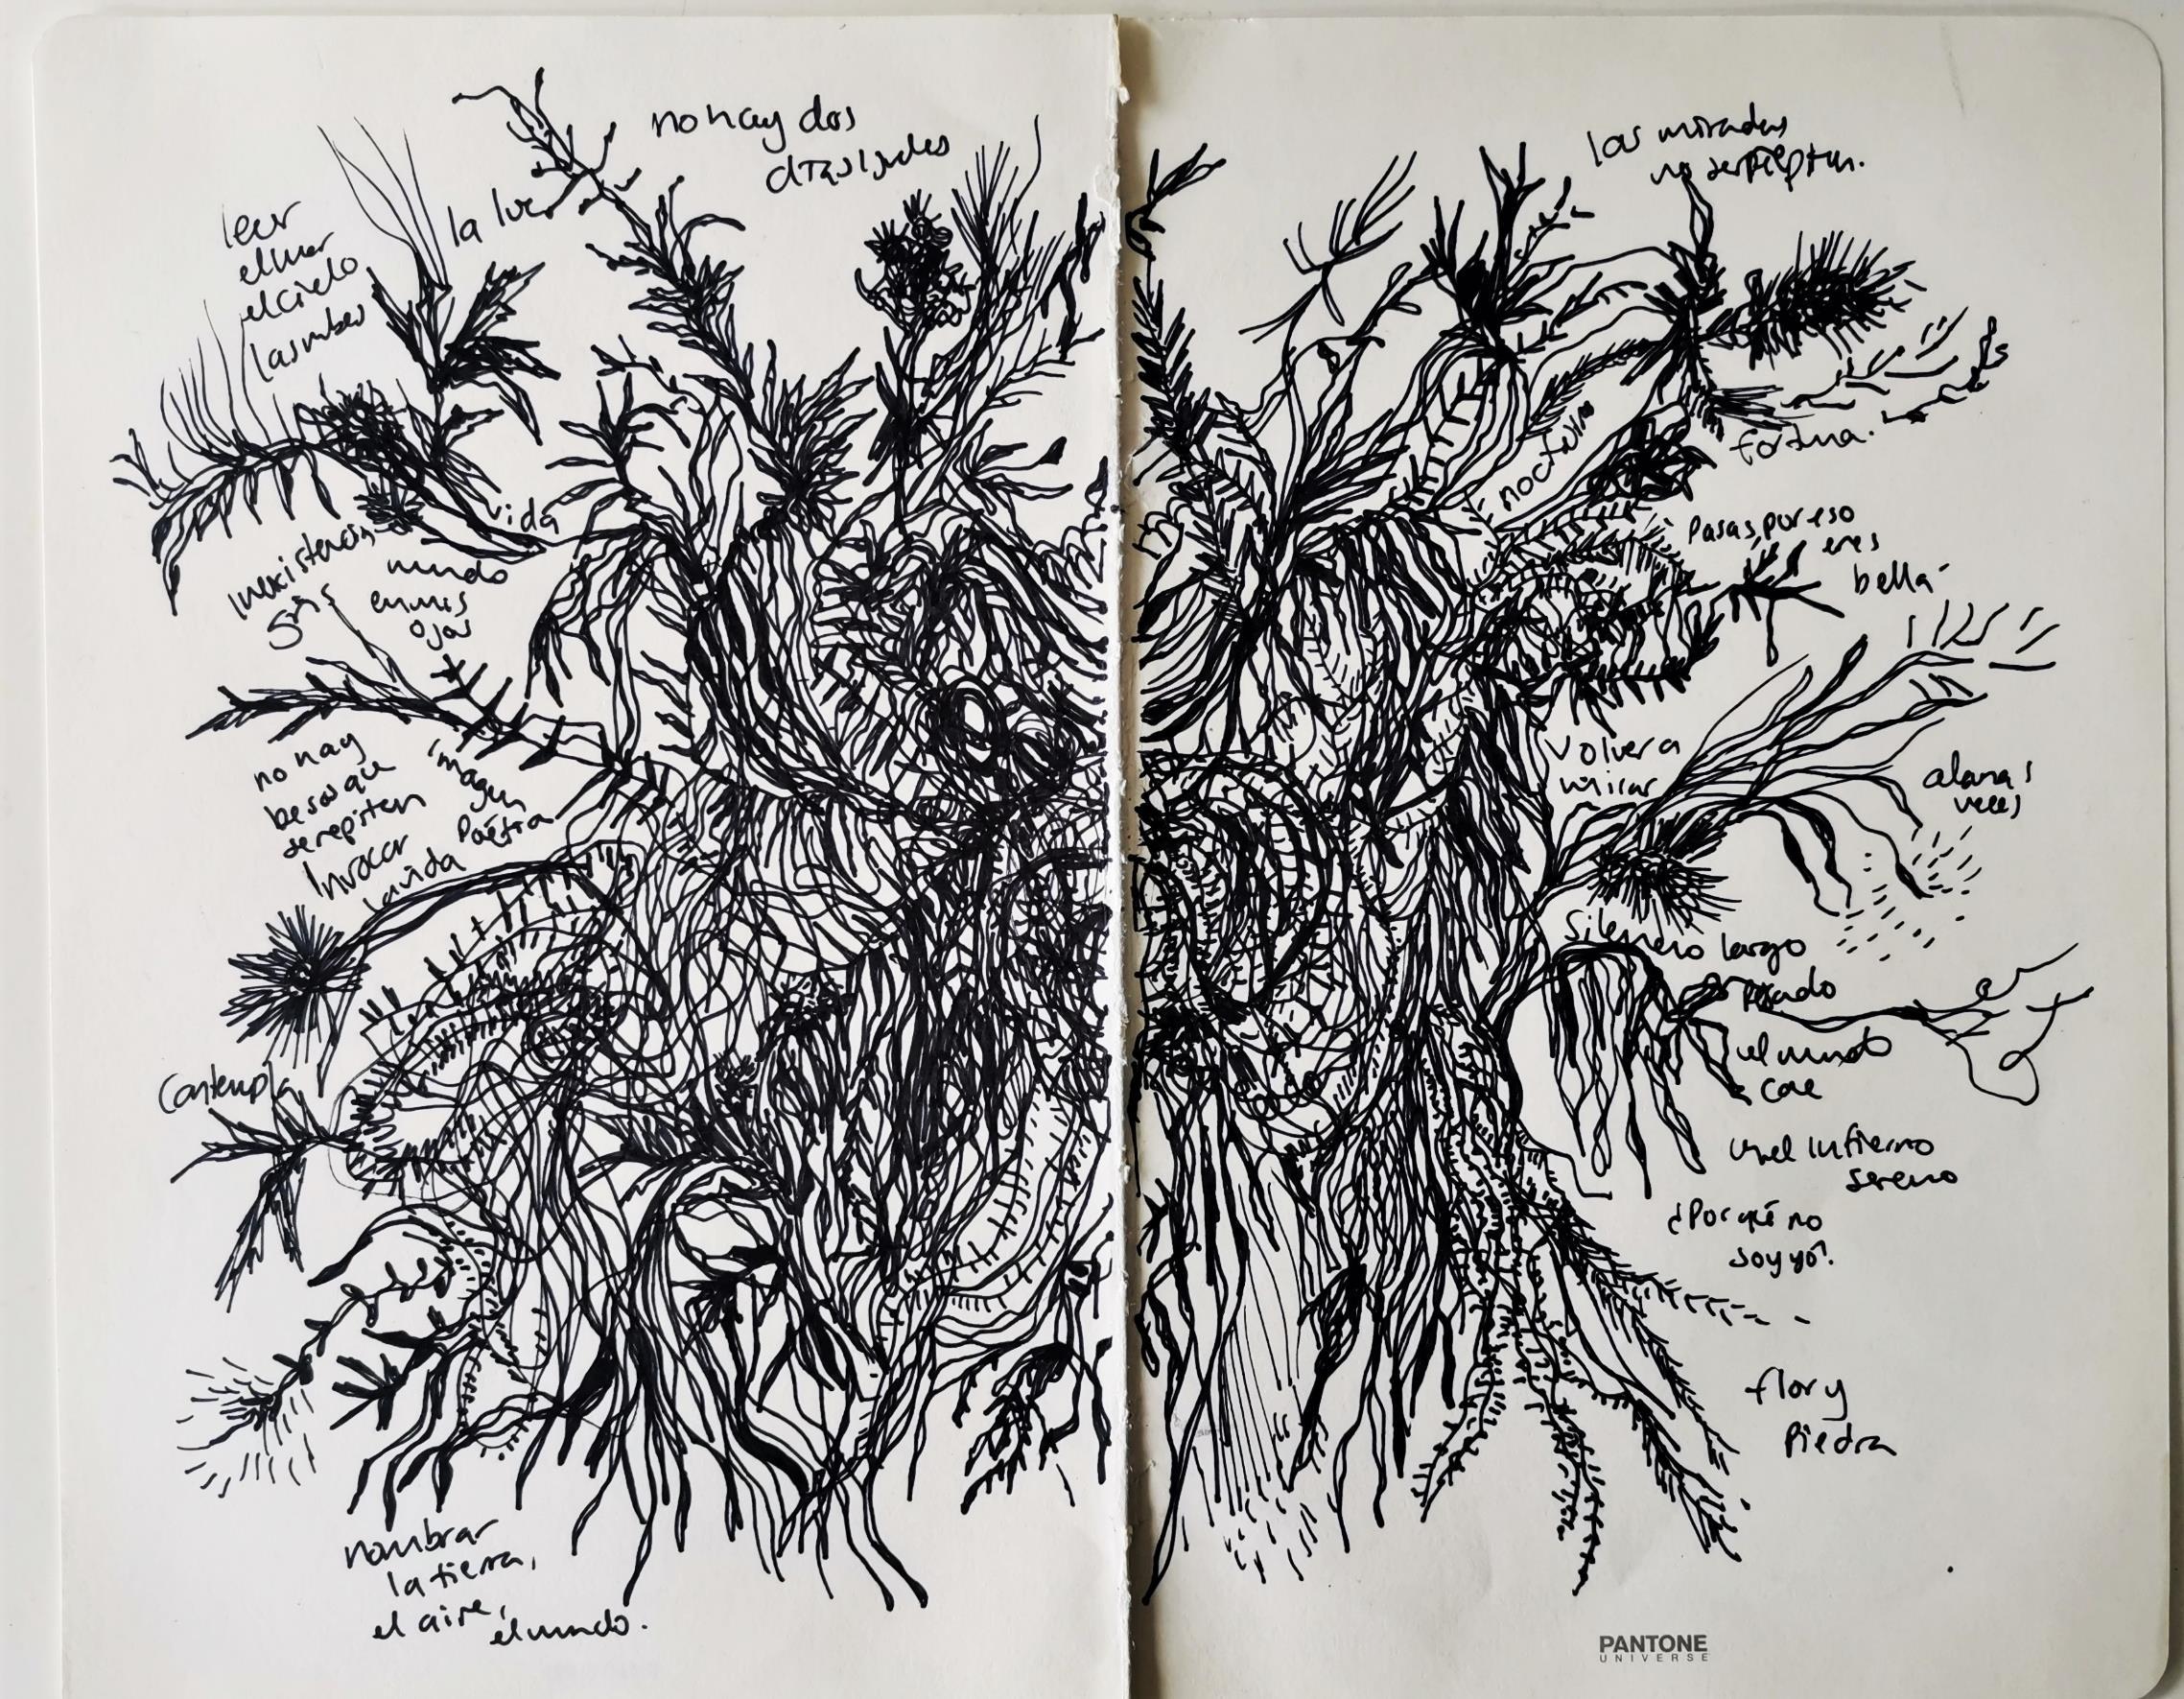 no hay dos
la luz
leer
el mar
el cielo
las nubes
vida
inexistencia
mundo
en mis
ojos
no hay
besos que
se repiten
invocar
la vida
imagen
Poética
Contempla
nombrar
la tierra,
el aire,
el mundo.
las miradas
no se repiten.
nocturna
fortuna.
Pasas, por eso
eres
bella
Volver a
mirar
veces
Silencio largo
el mundo
cae
en el infierno
sereno
¿Por qué no
soy yo?
flor y
Piedra
PANTONE
UNIVERSE